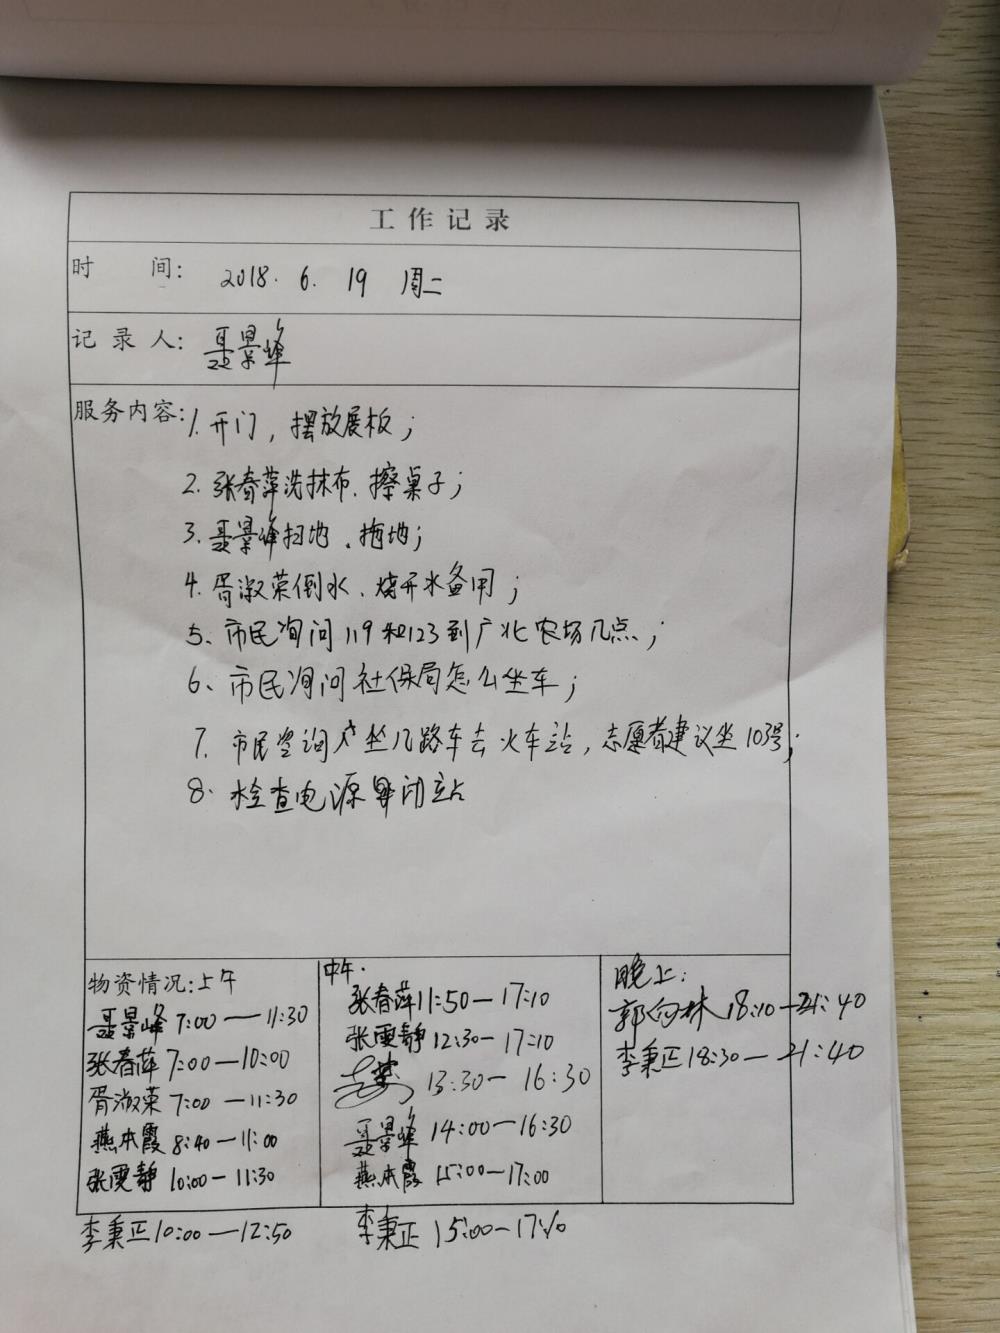 工作记录
时 间: 2018. 6. 19 周二
记录人: 聂景峰
服务内容:
1. 开门,摆放展板;
2. 张春萍洗抹布、擦桌子;
3. 聂景峰扫地、拖地;
4. 胥淑荣倒水、烧开水备用;
5、市民询问119和123到广北农场几点;
6、市民询问社保局怎么坐车;
7. 市民咨询坐几路车去火车站,志愿者建议坐103号;
8. 检查电源 闭站
物资情况:上午
聂景峰 7:00—11:30
张春萍 7:00—10:00
胥淑荣 7:00—11:30
燕本霞 8:40—11:00
张雯静 10:00—11:30
李秉正 10:00—12:50
中午.
张春萍 11:50—17:10
张雯静 12:30—17:10
13:30—16:30
聂景峰 14:00—16:30
燕本霞 15:00—17:00
李秉正 15:00—17:10
晚上:
郭向林 18:10—21:40
李秉正 18:30—21:40